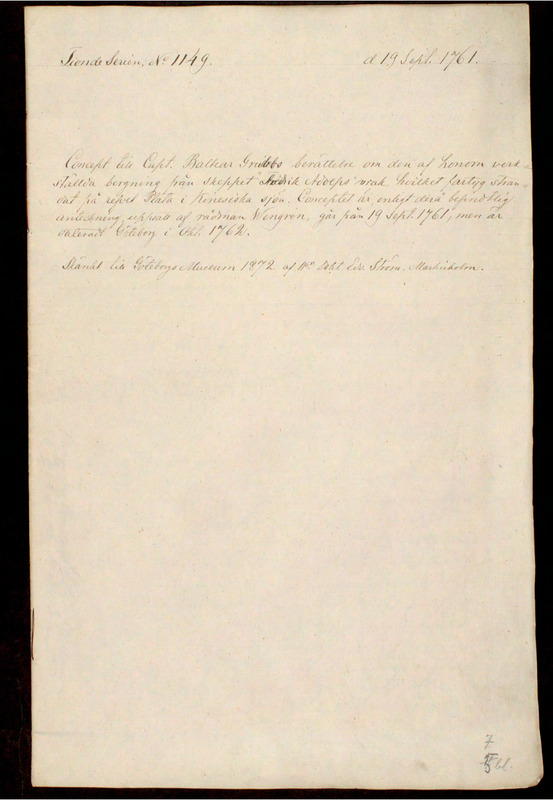 Tionde Serien, No 1149. d 19 Sept. 1761.
Concept till Capt. Baltzar Grubbs berättelse om den af honom verk-
ställda bergning från skeppet Fredrik Adolphs vrak hvilket fartyg stran-
dat på refvet Prata i Kinesiska sjön. Conceptet är, enligt derå befindtlig
anteckning, uppsatt af rådman Wengren, går från 19 Sept. 1761, men är
dateradt Göteborg i Okt. 1762.
Skänkt till Göteborgs Museum 1872 af Ström. Marieholm.
7
bl.